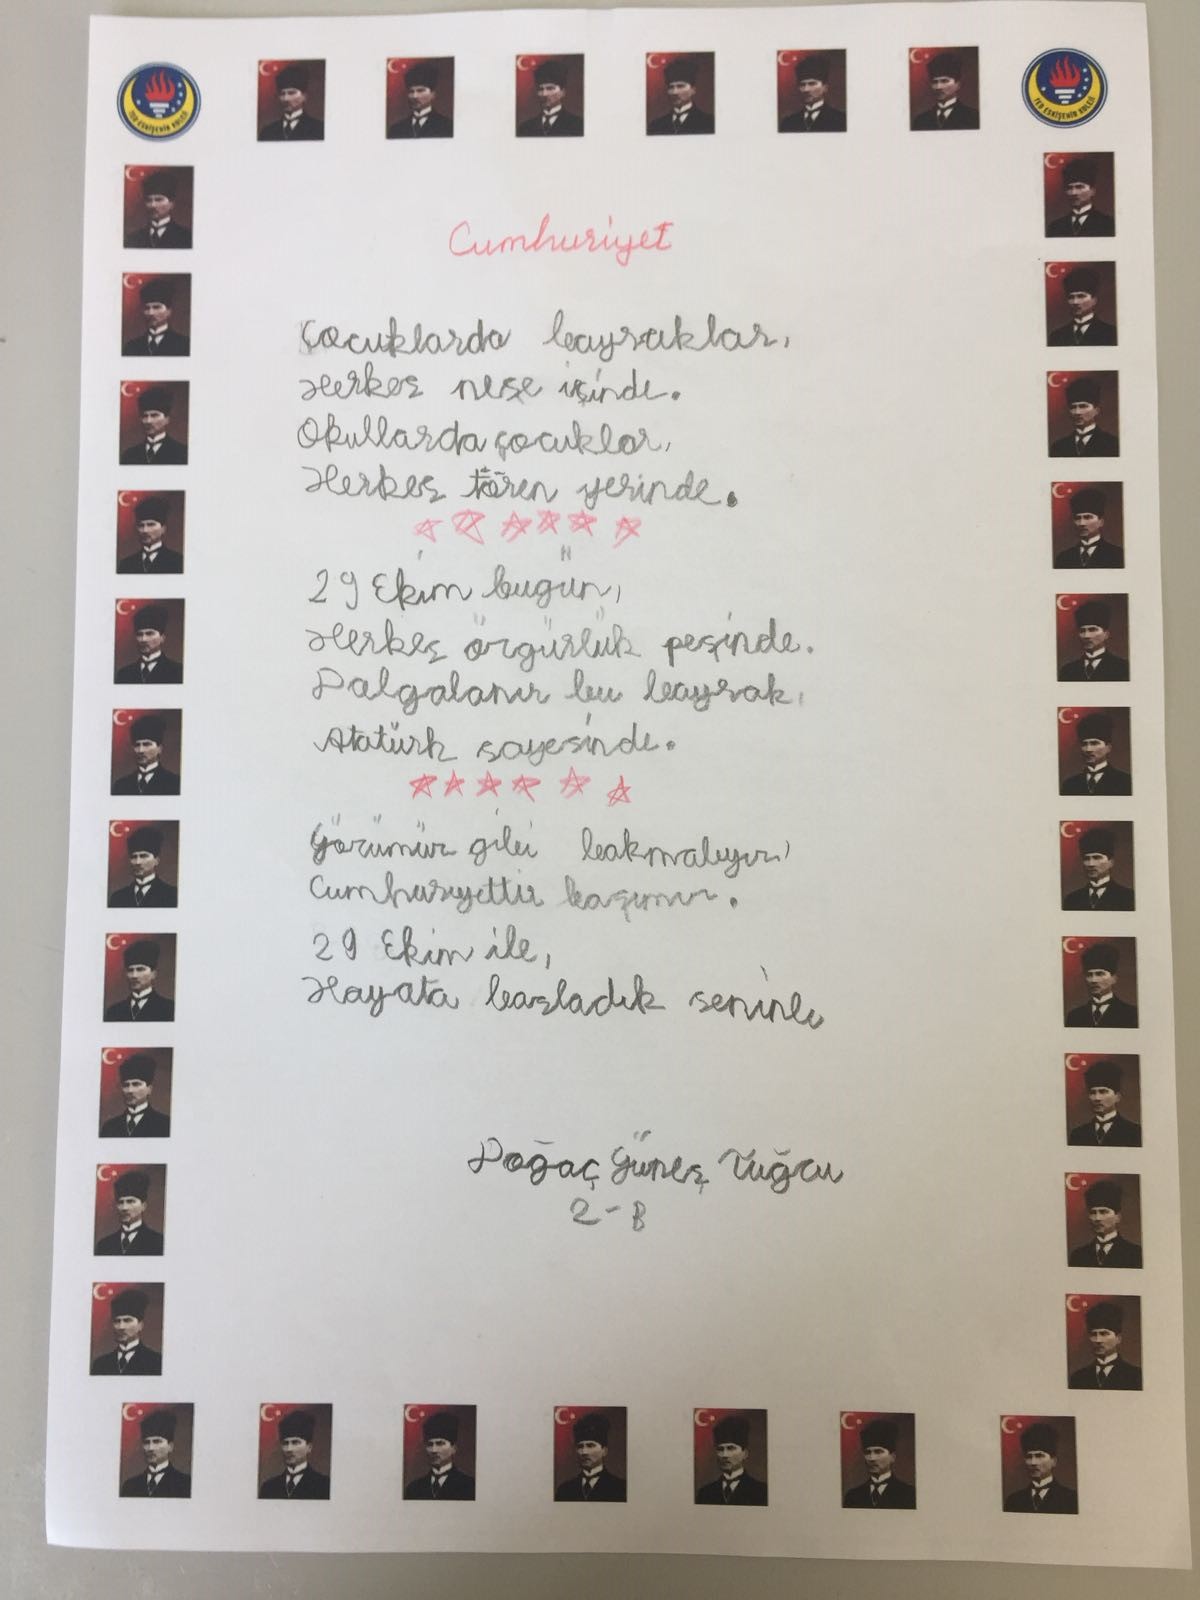 TED ESKİŞEHİR KOLEJİ
TED ESKİŞEHİR KOLEJİ
Cumhuriyet
Çocuklarda bayraklar,
Herkes neşe içinde.
Okullarda çocuklar,
Herkes tören yerinde.
29 Ekim bugün,
Herkes özgürlük peşinde.
Dalgalanır bu bayrak,
Atatürk sayesinde.
Gözümüz gibi bakmalıyız,
Cumhuriyettir başımız.
29 Ekim ile,
Hayata başladık seninle
Doğaç Güneş Tuğcu
2-B